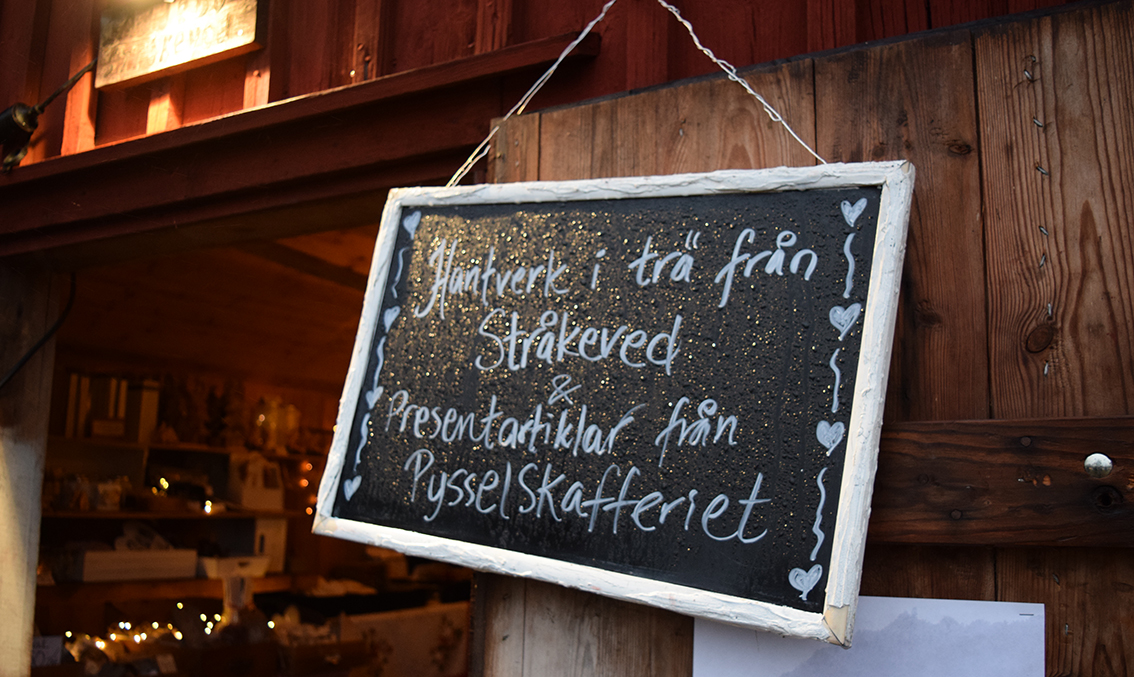 Hantverk i trä från
Stråkeved
&
Presentartiklar från
Pysselskafferiet